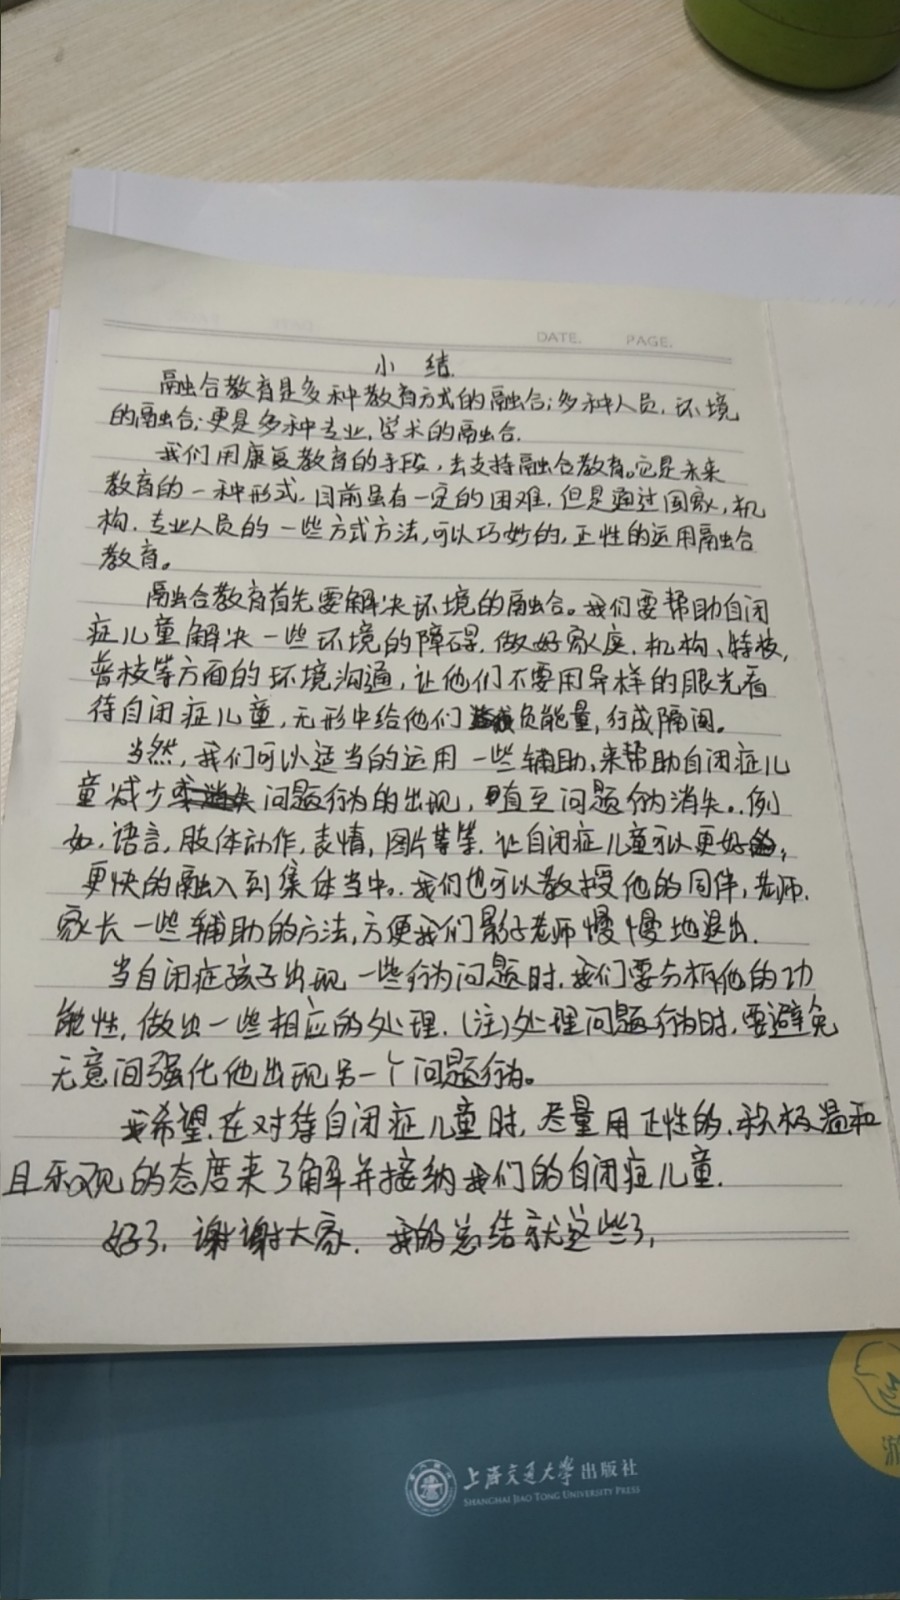 DATE. PAGE.
小结.
融合教育是多种教育方式的融合;多种人员,环境
的融合;更是多种专业,学术的融合.
我们用康复教育的手段,去支持融合教育。它是未来
教育的一种形式.目前虽有一定的困难.但是通过国家,机
构.专业人员的一些方式方法,可以巧妙的,正性的运用融合
教育。
融合教育首先要解决环境的融合。我们要帮助自闭
症儿童解决一些环境的障碍.做好家庭.机构、特校,
普校等方面的环境沟通,让他们不要用异样的眼光看
待自闭症儿童,无形中给他们负能量,行成隔阂。
当然,我们可以适当的运用一些辅助,来帮助自闭症儿
童减少问题行为的出现,直至问题行为消失。例
如.语言,肢体动作,表情,图片等等.让自闭症儿童可以更好,
更快的融入到集体当中.我们也可以教授他的同伴,老师.
家长一些辅助的方法,方便我们影子老师慢慢地退出.
当自闭症孩子出现一些行为问题时.我们要分析他的功
能性,做出一些相应的处理.(注)处理问题行为时,要避免
无意间强化他出现另一个问题行为。
我希望.在对待自闭症儿童时,尽量用正性的.积极温和
且乐观的态度来了解并接纳我们的自闭症儿童.
好了,谢谢大家.我的总结就这些了,
上海交通大学出版社
SHANGHAI JIAO TONG UNIVERSITY PRESS